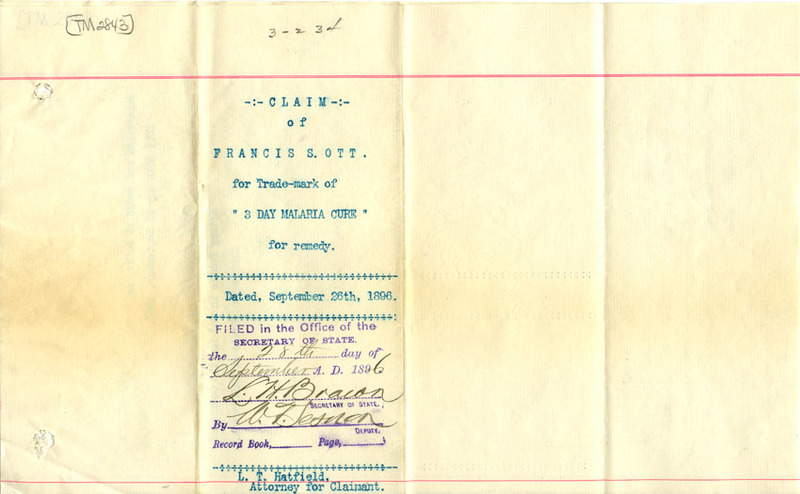 [TM2843]
3-2 3
-:- CLAIM -:-
of
FRANCIS S. OTT.
for Trade-mark of
" 3 DAY MALARIA CURE "
for remedy.
Dated, September 26th, 1896.
FILED in the Office of the
SECRETARY OF STATE.
the 28th day of
September A. D. 1896
L. H. Brown
SECRETARY OF STATE.
By W. T.
DEPUTY.
Record Book, Page,
L. T. Hatfield,
Attorney for Claimant.